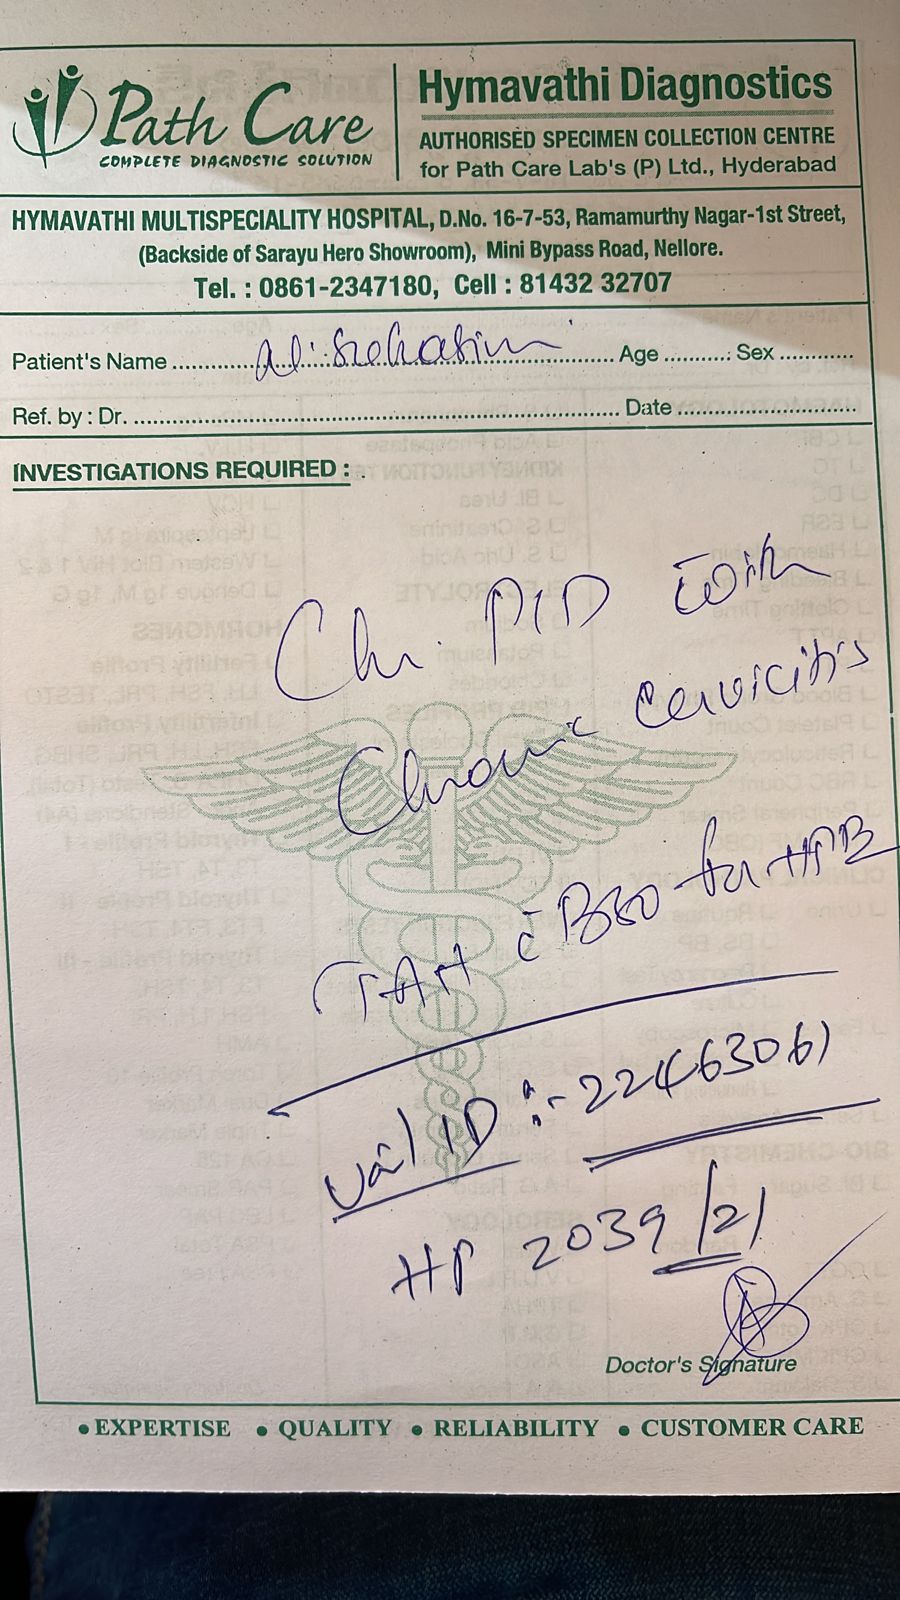 Path Care
COMPLETE DIAGNOSTIC SOLUTION
Hymavathi Diagnostics
AUTHORISED SPECIMEN COLLECTION CENTRE
for Path Care Lab's (P) Ltd., Hyderabad
HYMAVATHI MULTISPECIALITY HOSPITAL, D.No. 16-7-53, Ramamurthy Nagar-1st Street,
(Backside of Sarayu Hero Showroom), Mini Bypass Road, Nellore.
Tel. : 0861-2347180, Cell : 81432 32707
Patient's Name .......... Age .......... Sex ..........
Ref. by : Dr. .......... Date ..........
INVESTIGATIONS REQUIRED :
Ch. PID with
Chronic cervicitis
TAH c̄ BSO for HPE
Vail ID :- 22463061
HP 2039/21
Doctor's Signature
• EXPERTISE • QUALITY • RELIABILITY • CUSTOMER CARE